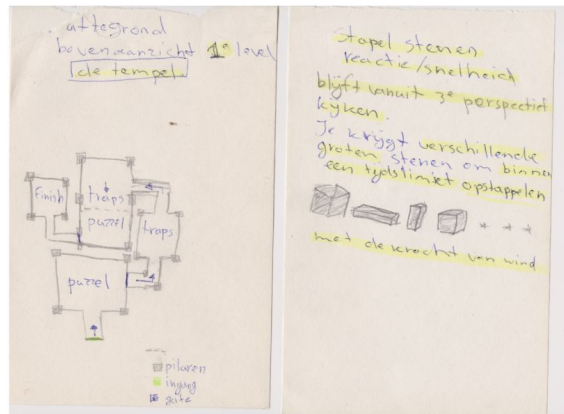 aftegrond
bovenaanzicht 1e level
de tempel
Finish
traps
puzzel
traps
puzzel
pilaren
ingang
gate
Stapel stenen
reactie/snelheid
blijft vanuit 3e perspectief
kyken.
Je krijgt verschillende
groten stenen om binnen
een tijdslimiet opstappelen
met de kracht van wind